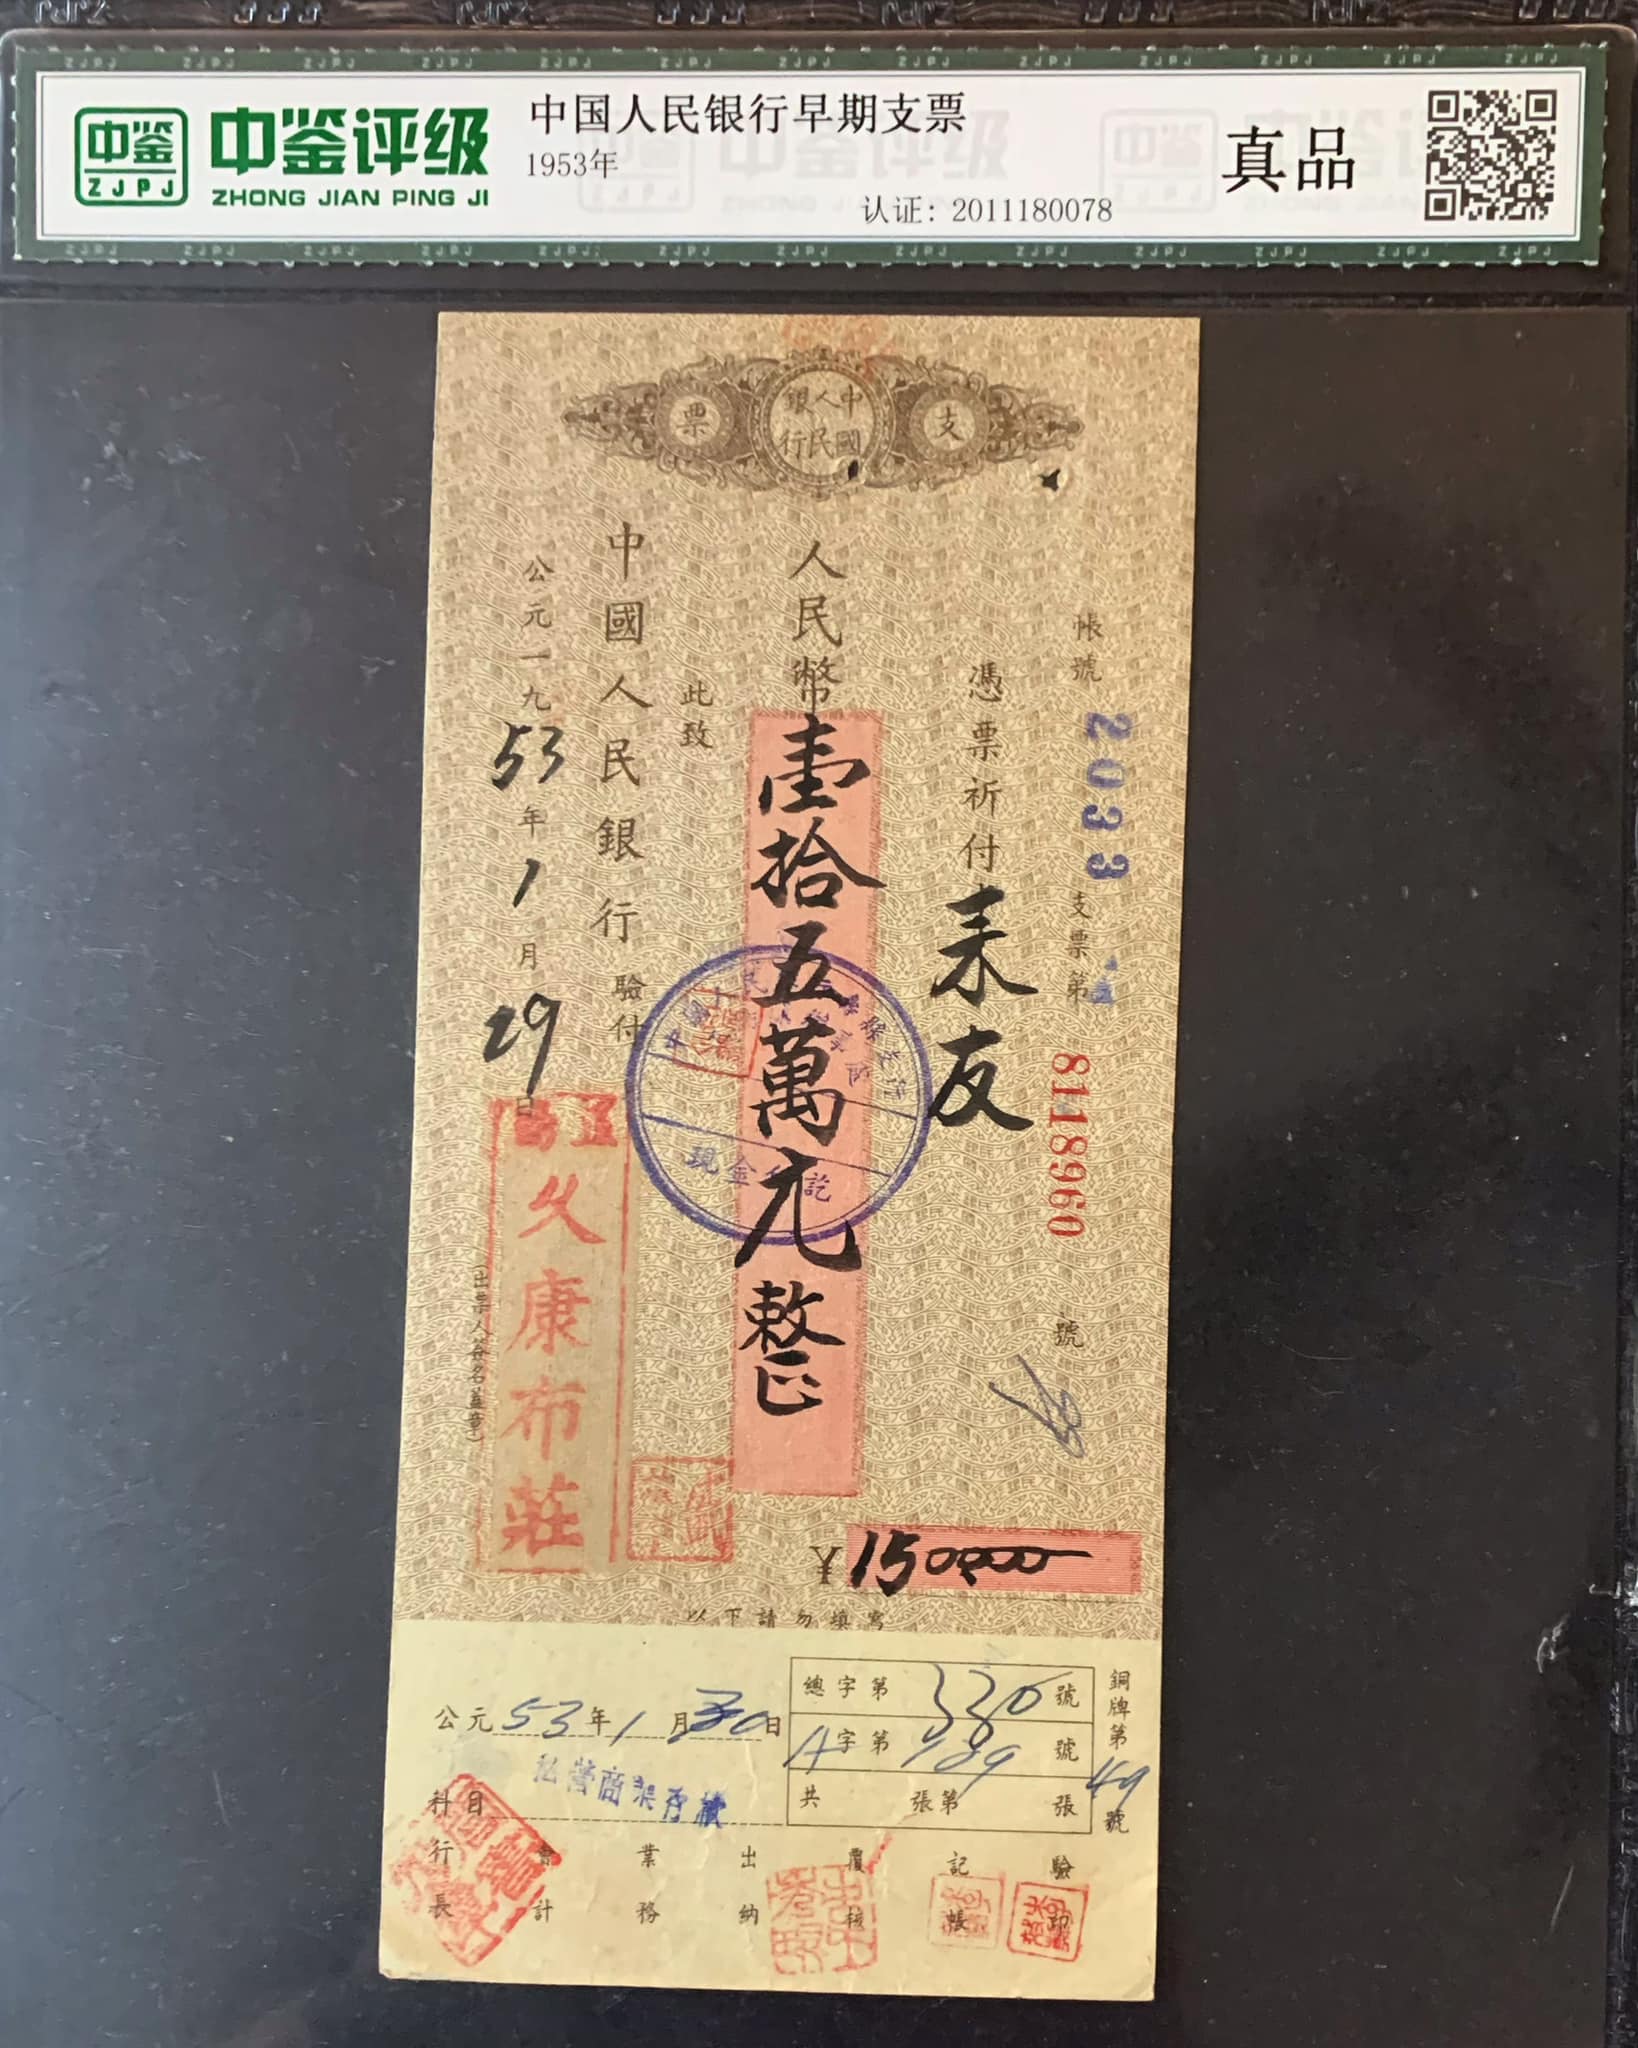 中鉴
ZJPJ
中鉴评级
ZHONG JIAN PING JI
中国人民银行早期支票
1953年
认证：2011180078
真品
支
中國人民銀行
票
帳號 2033 支票第 8118960 號
憑票祈付 來友
人民幣 壹拾五萬元整
此致
中國人民銀行 驗付
公元一九 53 年 1 月 29 日
現金 訖
久康布莊
(出票人簽名蓋章)
¥ 150000
以下請勿填寫
公元 53 年 1 月 30 日
總字第 號
A 字第 號
共 張第 張
銅牌第 49 號
科目 私營商業存款
行長 會計 業務 出納 覆核 記帳 驗印